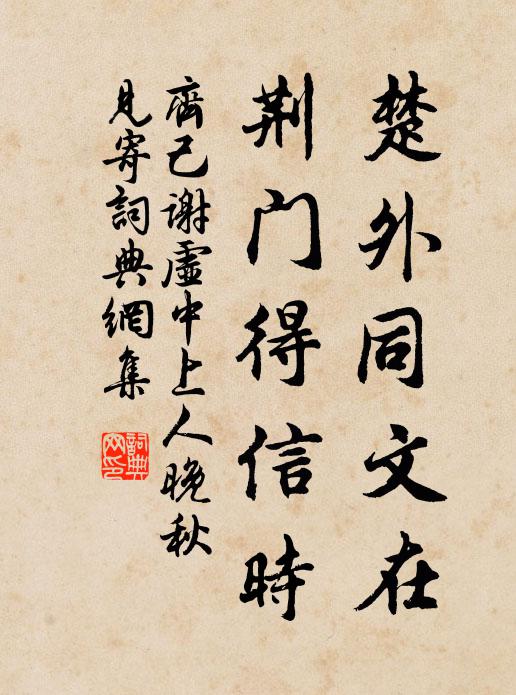 楚外同文在
荆门得信時
齊己謝虛中上人晚秋
見寄詞典網集
詞典网印